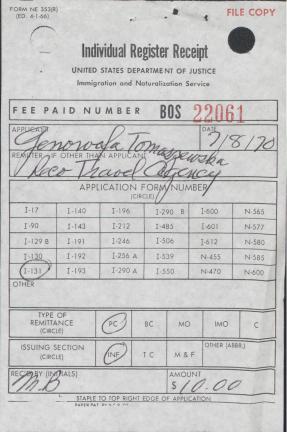 FORM NE 353(R)
(ED. 4-1-66)
FILE COPY
Individual Register Receipt
UNITED STATES DEPARTMENT OF JUSTICE
Immigration and Naturalization Service
FEE PAID NUMBER BOS 22061
APPLICANT DATE
Genowafa Tomaszewska 7/8/70
REMITTER, IF OTHER THAN APPLICANT
Reco Travel Agency
APPLICATION FORM NUMBER
(CIRCLE)
I-17 I-140 I-196 I-290 B I-600 N-565
I-90 I-143 I-212 I-485 I-601 N-577
I-129 B I-191 I-246 I-506 I-612 N-580
I-130 I-192 I-256 A I-539 N-455 N-585
I-131 I-193 I-290 A I-550 N-470 N-600
OTHER
TYPE OF REMITTANCE (CIRCLE) PC BC MO IMO C
ISSUING SECTION (CIRCLE) INF T C M & F OTHER (ABBR.)
REC'D BY (INITIALS) AMOUNT
M.B $ 10.00
STAPLE TO TOP RIGHT EDGE OF APPLICATION